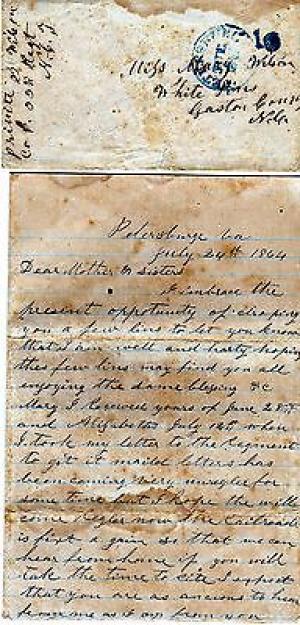 private W Wilson
Co P. 008 Regt
N. C. T
10
Miss Mary Wilson
White Pines
Gaston County
N.C.
Petersburge va
July 24th 1864
Dear Mother & Sisters
I imbrace the
present opportunity of droping
you a few lins to let you know
that I am well and harty hoping
thes few lins may find you all
enjoying the same blessing &C
Mary I Receved yours of June 28th
and Alifabeths July 12th when
I took my letter to the Regment
to git it maild letters has
been coming very unregler for
some time but I hope tha will
come Regler now the Railroad
is fixt a gain so that we can
hear from home if you will
take the time to rite I supose
that you are as ancious to hear
from me as I am from you